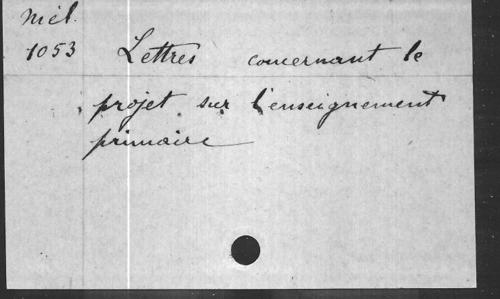 Mél.
1053 Lettres concernant le
projet sur l'enseignement
primaire